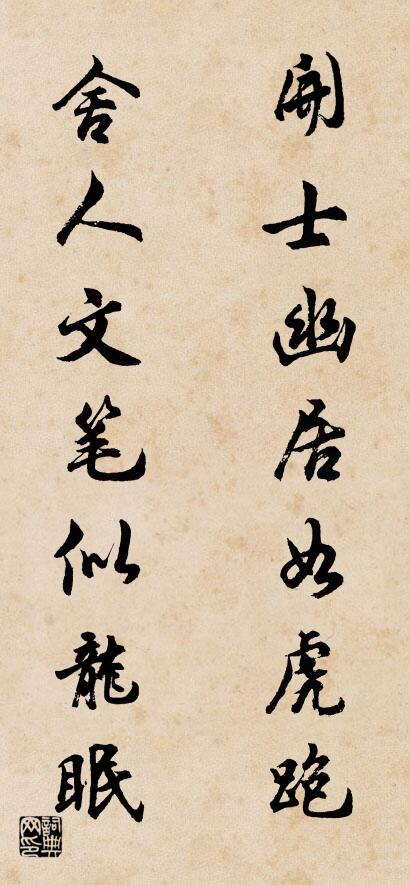 開士幽居如虎跑
舍人文笔似龍眠
詞典网印